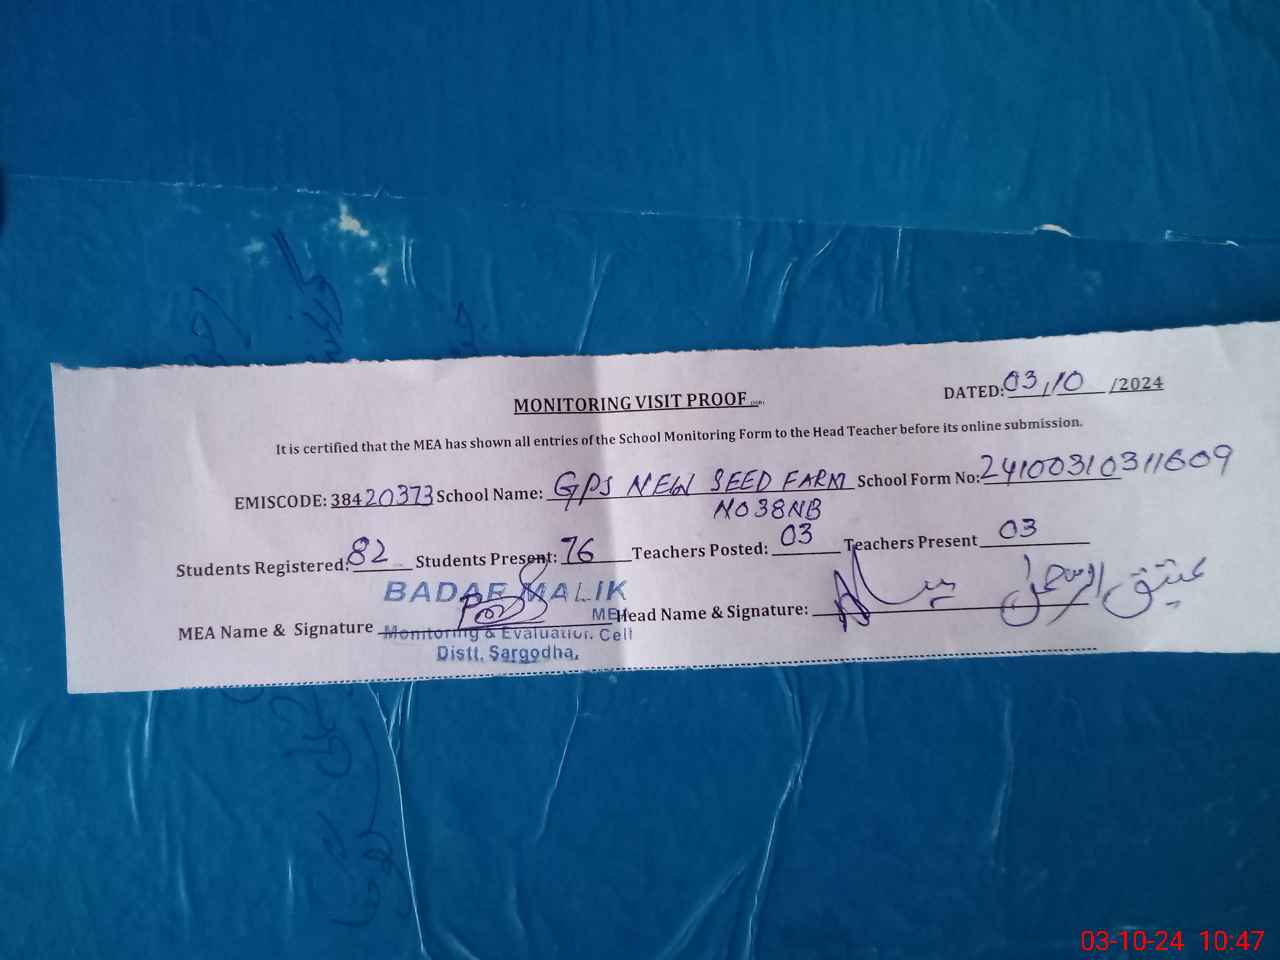 MONITORING VISIT PROOF
DATED: 03/10/2024
It is certified that the MEA has shown all entries of the School Monitoring Form to the Head Teacher before its online submission.
EMISCODE: 38420373 School Name: GPS NEW SEED FARM School Form No: 24100310311609
NO38NB
Students Registered: 82 Students Present: 76 Teachers Posted: 03 Teachers Present 03
BADAR MALIK
MEA Name & Signature Head Name & Signature: عتیق الرحمٰن
Monitoring & Evaluation Cell
Distt. Sargodha.
03-10-24 10:47